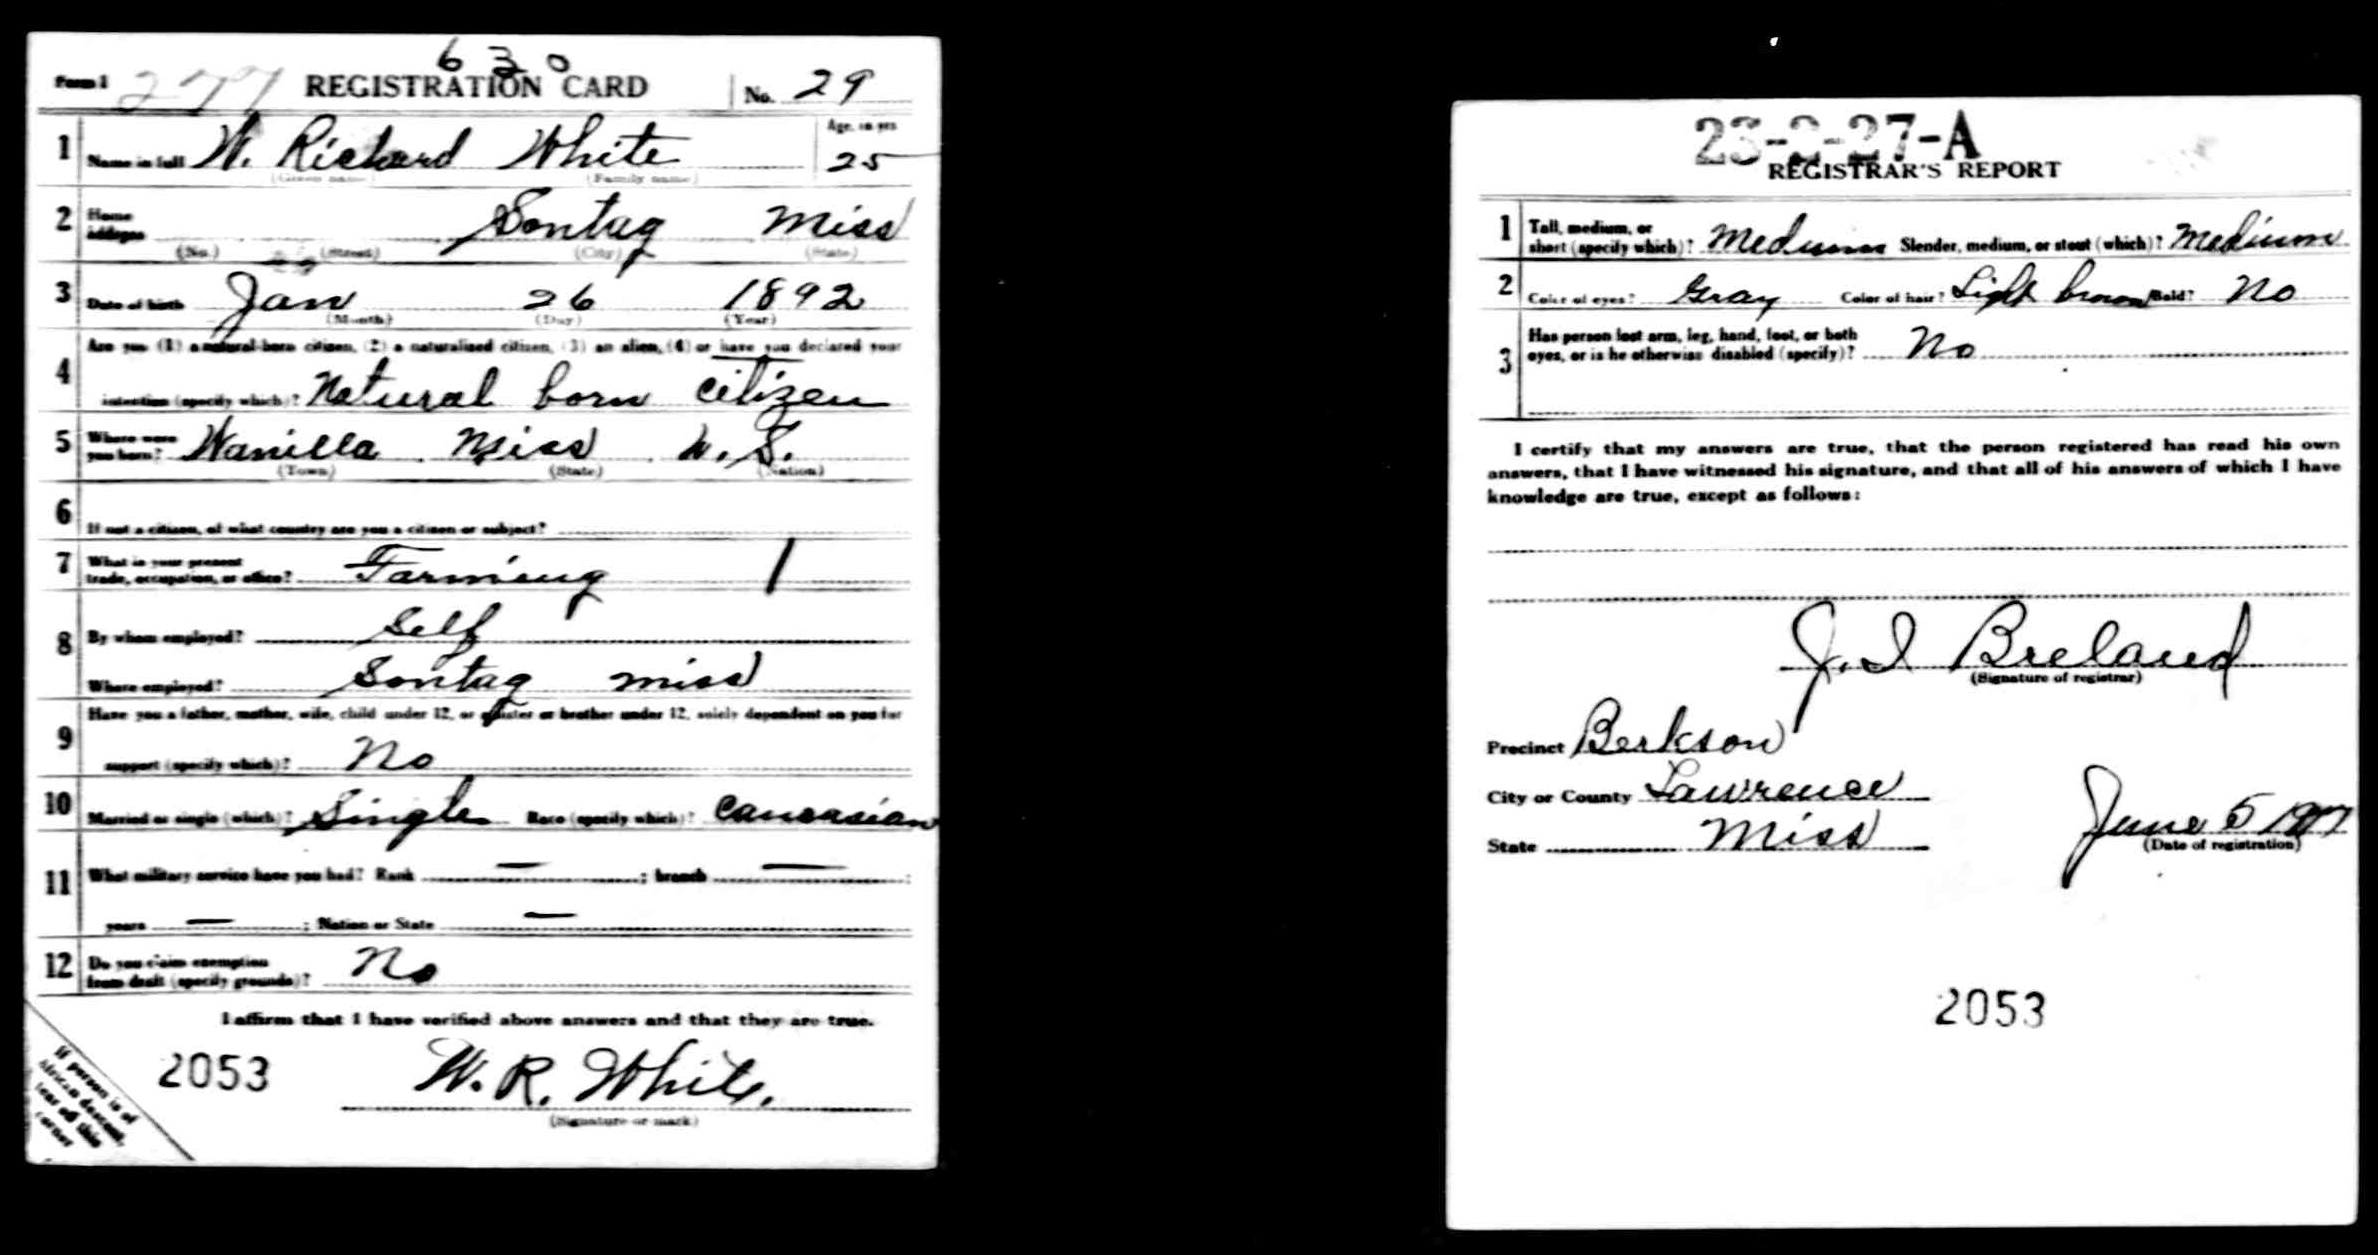 630
Form 1 277 REGISTRATION CARD No. 29
1 Name in full W. Richard White Age, in yrs 25
(Given name) (Family name)
2 Home address Sontag Miss
(No.) (Street) (City) (State)
3 Date of birth Jan 26 1892
(Month) (Day) (Year)
4 Are you (1) a natural-born citizen, (2) a naturalized citizen, (3) an alien, (4) or have you declared your
intention (specify which)? Natural born citizen
5 Where were you born? Wanilla Miss U.S.
(Town) (State) (Nation)
6 If not a citizen, of what country are you a citizen or subject?
7 What is your present trade, occupation, or office? Farming
8 By whom employed? Self
Where employed? Sontag Miss
9 Have you a father, mother, wife, child under 12, or a sister or brother under 12, solely dependent on you for
support (specify which)? No
10 Married or single (which)? Single Race (specify which)? Caucasian
11 What military service have you had? Rank — ; branch — ;
years — ; Nation or State —
12 Do you claim exemption from draft (specify grounds)? No
I affirm that I have verified above answers and that they are true.
2053 W. R. White.
(Signature or mark)
If person is of
African descent,
tear off this
corner
23-2-27-A
REGISTRAR'S REPORT
1 Tall, medium, or short (specify which)? Medium Slender, medium, or stout (which)? Medium
2 Color of eyes? Gray Color of hair? Light brown Bald? No
3 Has person lost arm, leg, hand, foot, or both eyes, or is he otherwise disabled (specify)? No
I certify that my answers are true, that the person registered has read his own
answers, that I have witnessed his signature, and that all of his answers of which I have
knowledge are true, except as follows:
J. I Breland
(Signature of registrar)
Precinct Berkson
City or County Lawrence
State Miss June 5 1917
(Date of registration)
2053